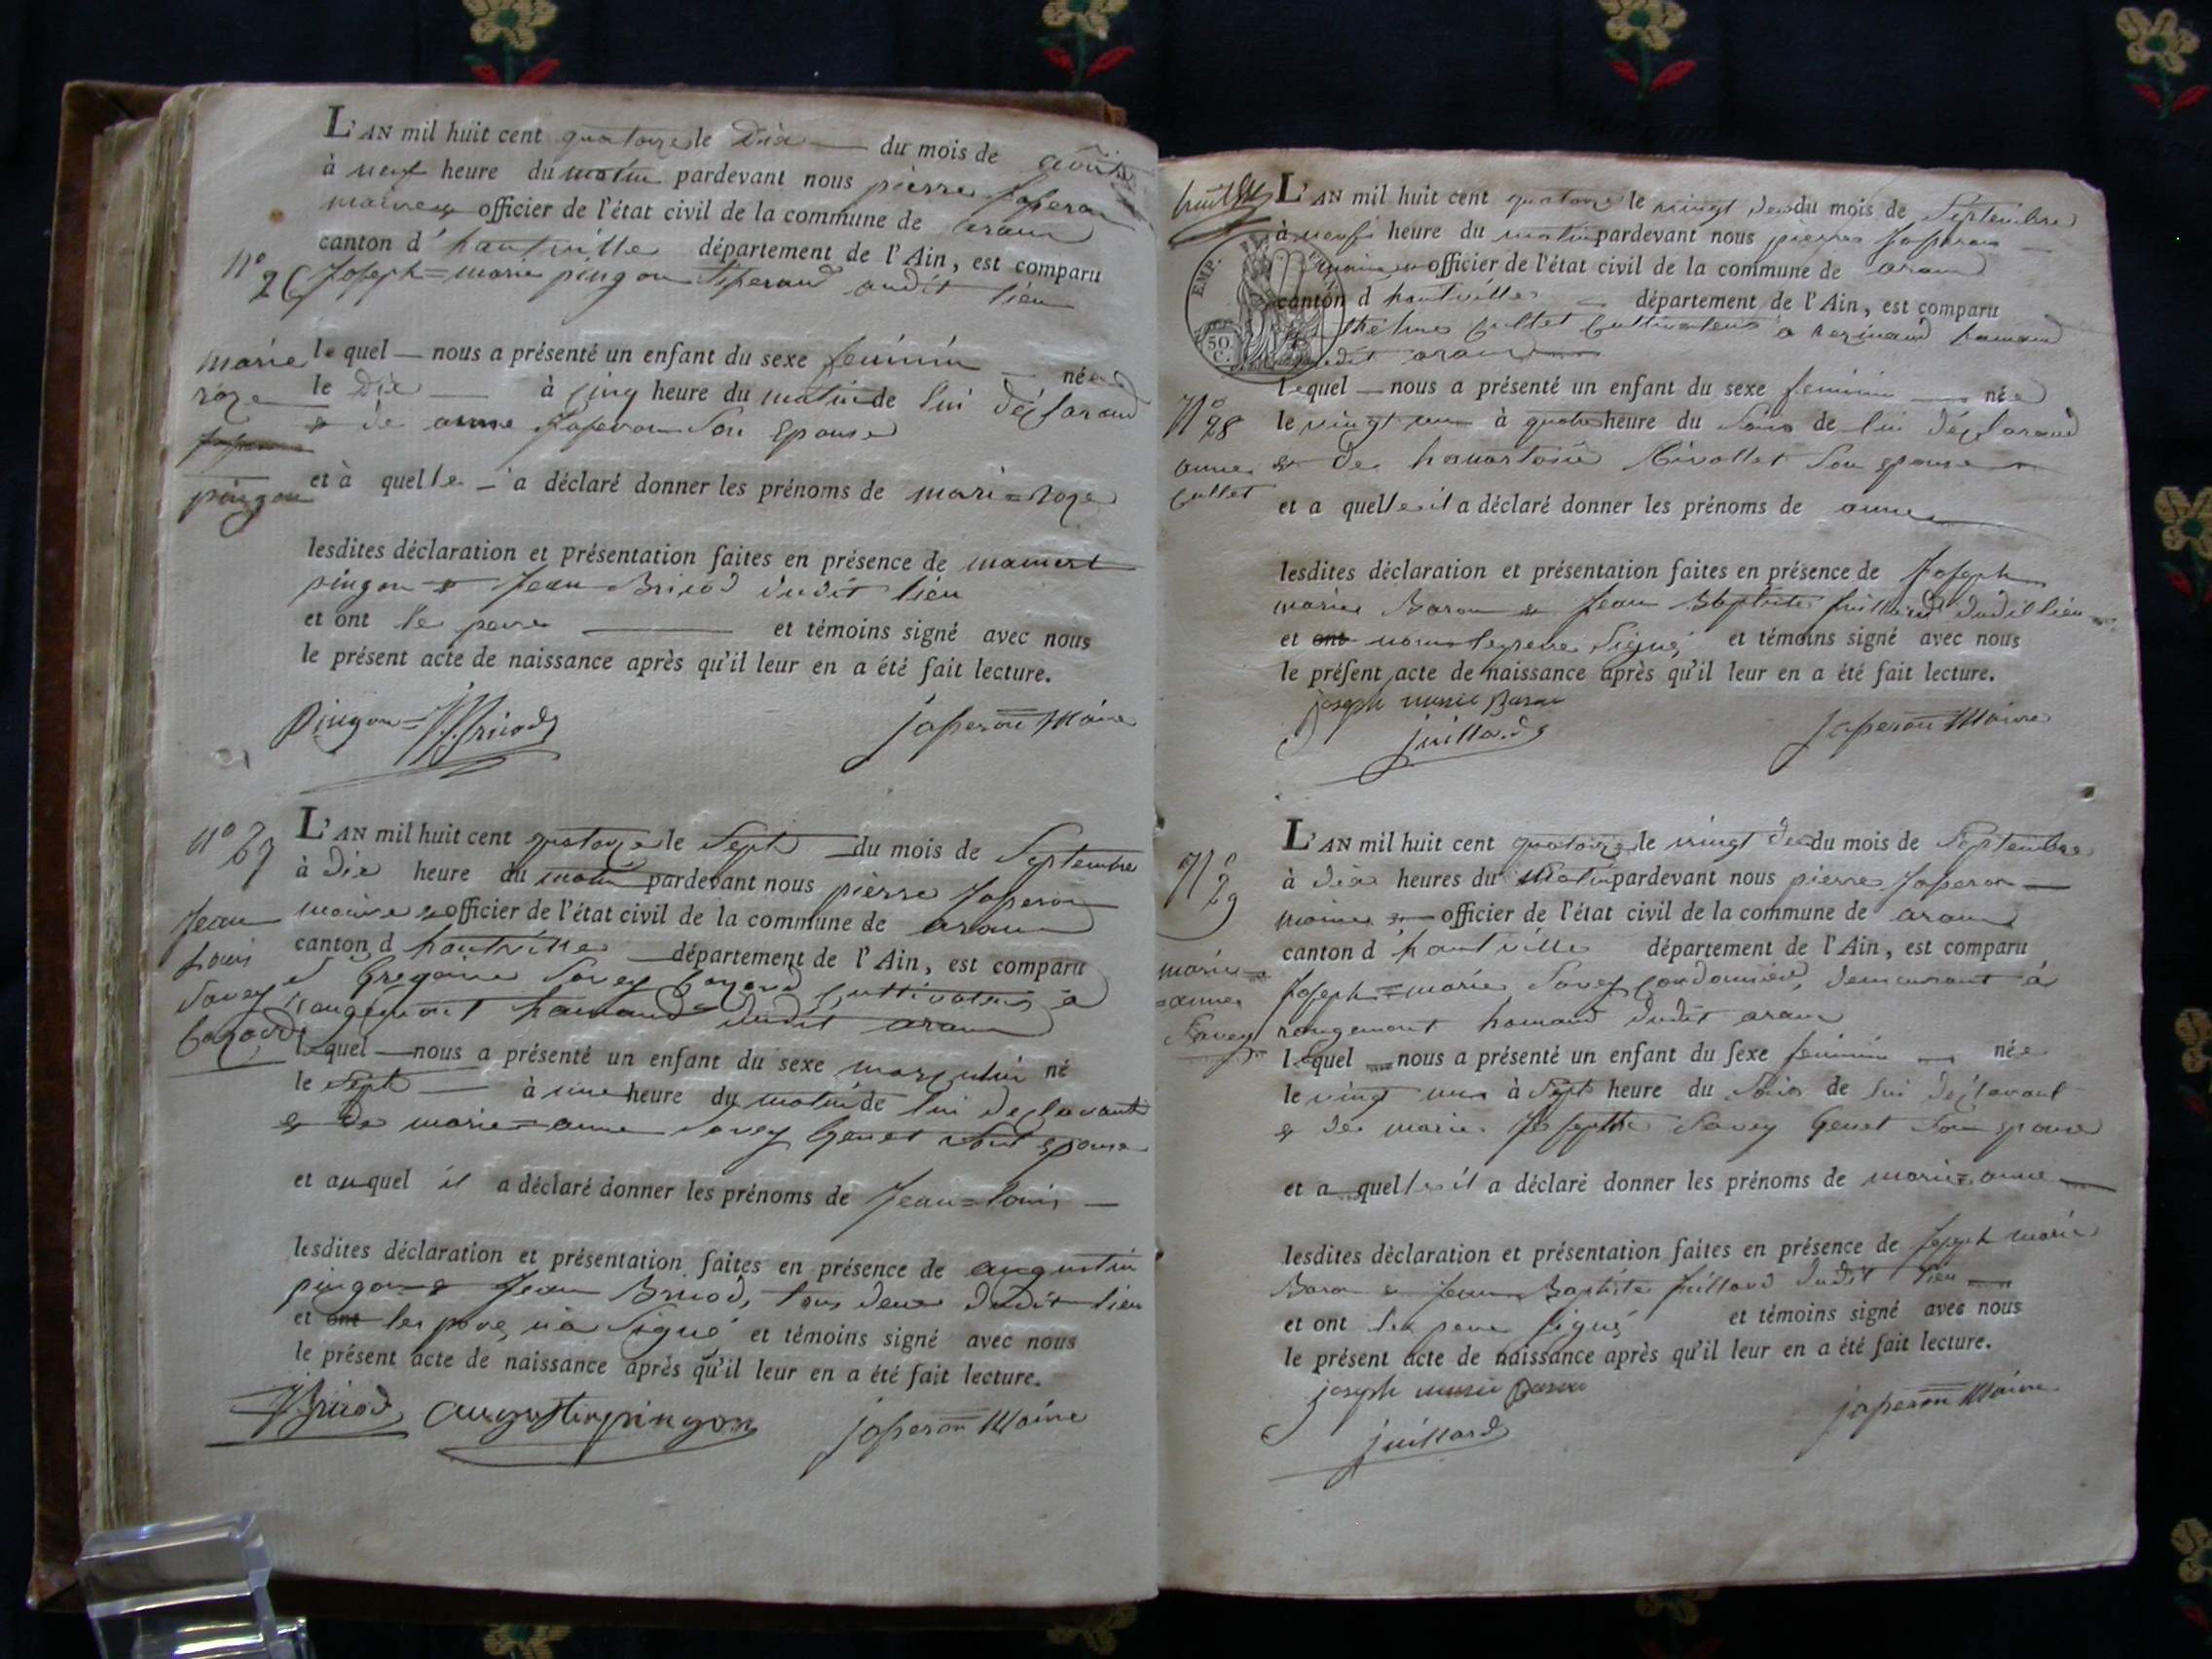 L'AN mil huit cent quatorze le Dix du mois de août
à neuf heure du matin pardevant nous pierre Japeron
maire et officier de l'état civil de la commune de aran
canton d'hautville département de l'Ain, est comparu
n° 26 Joseph=marie pingon audit lieu
lequel nous a présenté un enfant du sexe feminin née
le Dix à cinq heure du matin de lui déclarand
& de anne Japeron Son Epouse
marie
roze
pingon
et à quelle a déclaré donner les prénoms de marie=roze
lesdites déclaration et présentation faites en présence de mamert
pingon & Jean Briod dudit lieu
et ont le pere et témoins signé avec nous
le présent acte de naissance après qu'il leur en a été fait lecture.
Pingon J Briod japeron Maire
L'AN mil huit cent quatorze le Sept du mois de Septembre
à Dix heure du matin pardevant nous pierre Japeron
maire & officier de l'état civil de la commune de aran
canton d hautville département de l'Ain, est comparu
Gregoire Savey Cultivateur à
rougemont hamand dudit aran
n° 27
Jean
Louis
Savey
lequel nous a présenté un enfant du sexe masculin né
le Sept à une heure du matin de lui declarant
& de marie=anne Savey Genet son epouse
et auquel il a déclaré donner les prénoms de Jean=louis
lesdites déclaration et présentation faites en présence de augustin
pingon & Jean Briod, tous deux dudit lieu
et ont le pere, n'a Signé et témoins signé avec nous
le présent acte de naissance après qu'il leur en a été fait lecture.
J Briod augustin pingon japeron Maire
L'AN mil huit cent quatorze le vingt deux du mois de Septembre
à neuf heure du matin pardevant nous pierre Japeron
maire & officier de l'état civil de la commune de aran
canton d hautville département de l'Ain, est comparu
Cullet Cultivateur a hamand
dudit aran
EMP.
50
C.
lequel nous a présenté un enfant du sexe feminin née
le vingt un à quatre heure du Soir de lui déclarand
& de Rivollet Son epouse
N° 28
anne
Cullet
et a quelle il a déclaré donner les prénoms de anne
lesdites déclaration et présentation faites en présence de Joseph
marie Baron & Jean Baptiste Juillard dudit lieu
et ont non le pere Signé et témoins signé avec nous
le présent acte de naissance après qu'il leur en a été fait lecture.
joseph marie Baron
juillard japeron Maire
L'AN mil huit cent quatorze le vingt deux du mois de Septembre
à dix heures du Matin pardevant nous pierre Japeron
maire & officier de l'état civil de la commune de aran
canton d'hautville département de l'Ain, est comparu
Joseph=marie Savey Cordonnier, demeurant à
rougemont hamand dudit aran
N° 29
marie
=anne
Savey
lequel nous a présenté un enfant du sexe feminin née
le vingt un à Sept heure du Soir de lui déclarant
& de marie Josephte Savey Genet Son epouse
et a quelle il a déclaré donner les prénoms de marie=anne
lesdites déclaration et présentation faites en présence de Joseph marie
Baron & Jean Baptiste Juillard dudit lieu
et ont le pere signé et témoins signé avec nous
le présent acte de naissance après qu'il leur en a été fait lecture.
joseph marie Baron
juillard japeron Maire